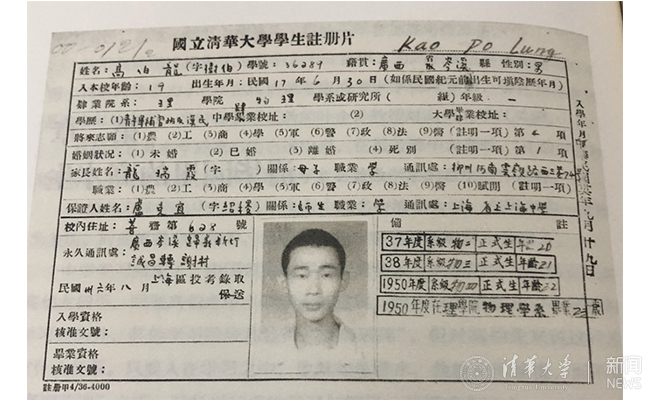 Kao Po Lung
國立清華大學學生註册片
姓名：高伯龍（字樹伯）學號：36289 籍貫：廣西省岑溪縣 性別：男
入本校年齡：19 出生年月：民國17年6月30日（如係民國紀元前出生可填陰歷年月）
肄業院系：理學院物理學系或研究所（ 組）年級：一
學歷：(1) 中學畢業校址： (2) 大學畢業校址：
將來志願：(1)農 (2)工 (3)商 (4)學 (5)軍 (6)警 (7)政 (8)法 (9)醫（註明一項）第4項
婚姻狀況：(1)未婚 (2)已婚 (3)離婚 (4)死別（註明一項）第1項
家長姓名：龍瑞霞（字 ）關係：母子 職業：學 通訊處：柳州河南
職業：(1)農 (2)工 (3)商 (4)學 (5)軍 (6)警 (7)政 (8)法 (9)醫 (10)賦閒（註明一項）
保證人姓名：盧克宜（字紹稷）關係：師生 職業：學 通訊處：上海省立上海中學
校內住址：善齋第628號
永久通訊處：廣西岑溪歸義新圩
誠昌轉謝村
民國卅六年八月上海區投考錄取
保送
入學資格
核准文號：
畢業資格
核准文號：
備註
37年度 系級物二 正式生 年齡20
38年度 系級物三 正式生 年齡21
1950年度 系級物四 正式生 年齡22
1950年度在理學院物理學系畢業
註册甲4/36-4000
清華大学
新闻
NEWS